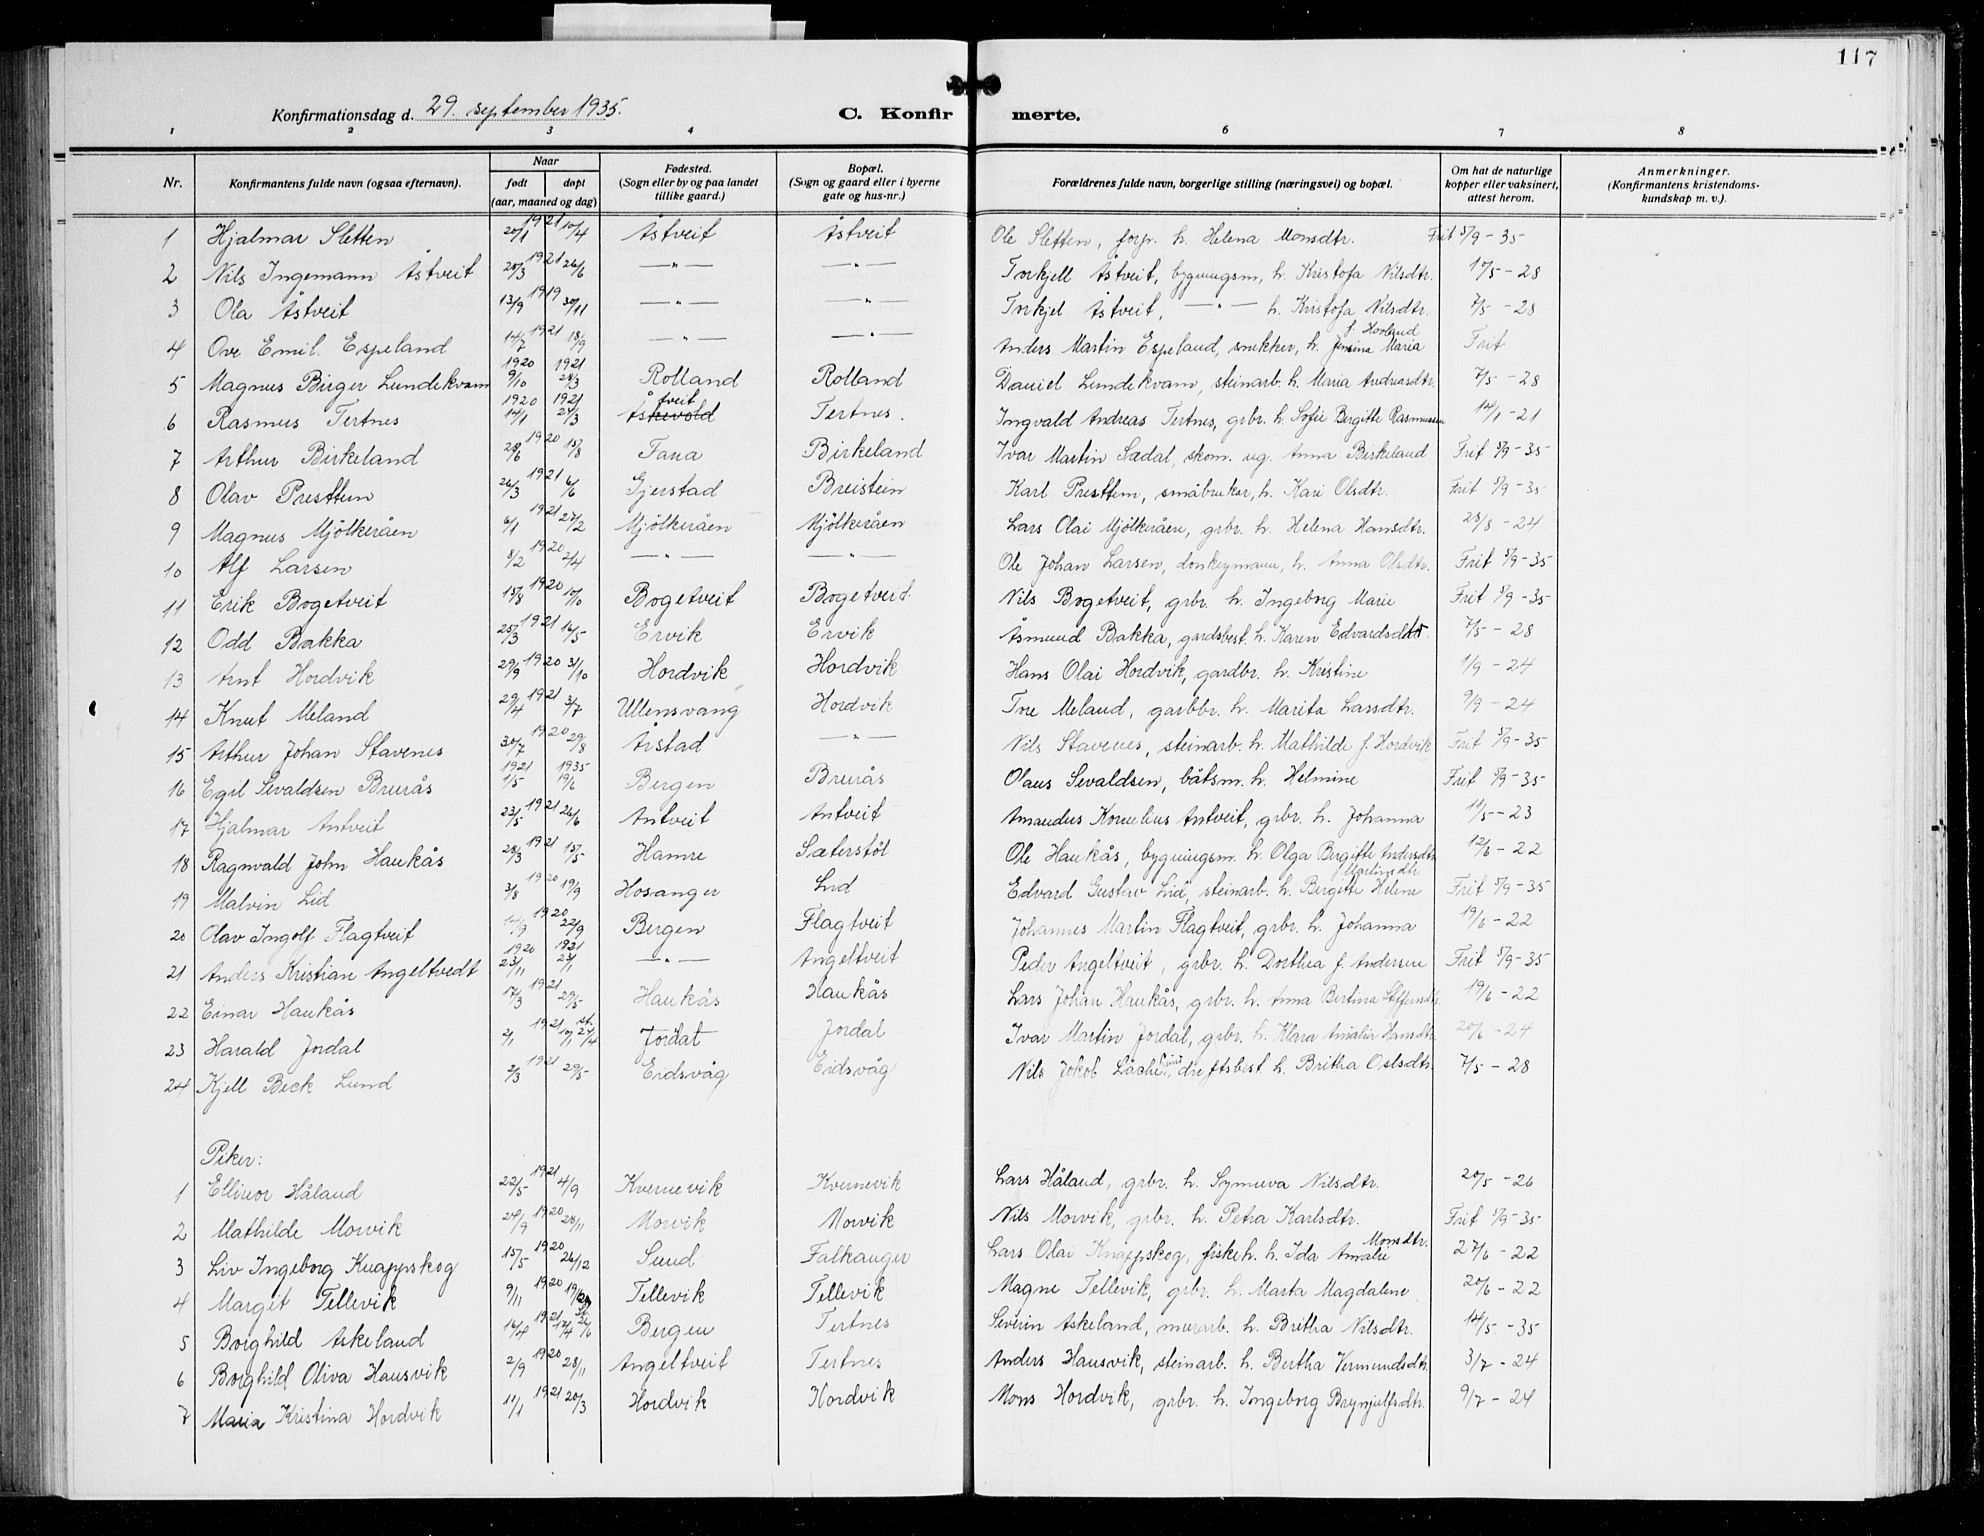 117
Konfirmationsdag d. 29. september 1935. C. Konfirmerte.
1 2 3 4 6 7 8
Nr. | Konfirmantens fulde navn (ogsaa efternavn). | Naar født døpt (aar, maaned og dag) | Fødested. (Sogn eller by og paa landet tillike gaard.) | Bopæl. (Sogn og gaard eller i byerne gate og hus-nr.) | Forældrenes fulde navn, borgerlige stilling (næringsvei) og bopæl. | Om hat de naturlige kopper eller vaksinert, attest herom. | Anmerkninger. (Konfirmantens kristendomskundskap m. v.).
1 Hjalmar Sletten 20/1 1921 10/4 Åstveit Åstveit Ole Sletten, forp. h. Helena Monsdtr. Frit 5/9-35
2 Nils Ingemann Åstveit 20/3 1921 26/6 —"— —"— Torkjell Åstveit, bygningsm, h. Kristofa Nilsdtr. 15/5-28
3 Ola Åstveit 13/9 1919 30/11 —"— —"— Torkjel Åstveit, —"— h. Kristofa Nilsdtr. 7/5-28
4 Ove Emil Espeland 14/7 1921 18/9 —"— —"— Anders Martin Espeland, snekker, h. Jensina Maria f. Hovland Frit
5 Magnus Birger Lundekvam 1920 9/10 1921 28/3 Rolland Rolland Daniel Lundekvam, steinarb. h. Maria Andreasdtr. 7/5-28
6 Rasmus Tertnes 1920 14/1 1921 24/3 Åstveit Tertnes. Ingvald Andreas Tertnes, grbr. h. Sofie Bergitte Rasmussen 14/1-21
7 Arthur Birkeland 28/6 1920 15/8 Fana Birkeland Ivar Martin Sædal, skom. ug. Anna Birkeland Frit 5/9-35
8 Olav Presttun 26/3 1921 6/6 Gjerstad Breistein Karl Presttun, småbruker, h. Kari Olsdtr. Frit 5/9-35
9 Magnus Mjölkeråen 6/1 1921 27/2 Mjölkeråen Mjölkeråen Lars Olai Mjölkeråen, grbr. h. Helena Hansdtr. 28/8-24
10 Alf Larsen 8/2 1920 2/4 —"— —"— Ole Johan Larsen, donkeymann, h. Anna Olsdtr. Frit 5/9-35
11 Erik Bogetveit 15/8 1920 10/10 Bogetveit Bogetveit Nils Bogetveit, grbr. h. Ingeborg Marie Frit 5/9-35
12 Odd Bakka 25/3 1921 16/5 Ervik Ervik Åsmund Bakka, gardsbest. h. Karen Edvardsdtr. 7/5-28
13 Arnt Hordvik 29/9 1920 31/10 Hordvik Hordvik Hans Olai Hordvik, gardbr. h. Kristine 1/9-24
14 Knut Meland 29/4 1921 3/7 Ullensvang Hordvik Tore Meland, garbbr. h. Marita Larsdtr. 9/9-24
15 Arthur Johan Stavenes 30/7 1920 29/8 Årstad —"— Nils Stavenes, steinarb. h. Mathilde f. Hordvik Frit 5/9-35
16 Egil Sevaldsen Brurås 1921 1/5 1935 19/6 Bergen Brurås Olaus Sevaldsen, båtsm. h. Helmine Frit 5/9-35
17 Hjalmar Antveit 23/5 1921 26/6 Antveit Antveit Amandus Kornelius Antveit, grbr. h. Johanna 11/5-23
18 Ragnvald John Haukås 28/3 1921 15/5 Hamre Sæterstöl Ole Haukås, bygningsm. h. Olga Bergitte Andersdtr. 12/6-22
19 Malvin Lid 3/8 1920 19/9 Hosanger Lid Edvard Gustav Lid, steinarb. h. Bergitte Helene Martinsdtr Frit 5/9-35
20 Olav Ingolf Flagtveit 1920 22/9 Bergen Flagtveit Johannes Martin Flagtveit, grbr. h. Johanna 19/6-22
21 Anders Kristian Angeltvedt 1920 23/11 1921 23/1 —"— Angeltveit Peder Angeltveit, grbr. h. Dorthea f. Andersen Frit 5/9-35
22 Einar Haukås 17/3 1921 29/5 Haukås Haukås Lars Johan Haukås, grbr. h. Anna Bertina 19/6-22
23 Harald Jordal 2/1 1921 10/1 st. 27/4 Jordal Jordal Ivar Martin Jordal, grbr. h. Klara Amalia Hansdtr. 20/6-24
24 Kjell Beck Lund 2/3 1921 29/5 Eidsvåg Eidsvåg Nils Jokob driftsbest h. Britha Oslsdtr. 7/5-28
Piker:
1 Ellinor Håland 22/5 1921 4/9 Kvernevik Kvernevik Lars Håland, grbr. h. Synnøva Nilsdtr. 20/5-26
2 Mathilde Morvik 24/9 1920 28/11 Morvik Morvik Nils Morvik, grbr. h. Petra Karlsdtr. Frit 5/9-35
3 Liv Ingeborg Knappskog 15/5 1920 26/12 Sund Falkanger Lars Olai Knappskog, fiskeh. h. Ida Amalie Monsdtr. 27/6-22
4 Margit Tellevik 9/11 1920 19/12 Tellevik Tellevik Magne Tellevik, grbr. h. Marta Magdalene 20/6-22
5 Borghild Askeland 16/4 1921 17/4 Bergen Tertnes Severin Askeland, murarb. h. Britha Nilsdtr. 14/5-35
6 Borghild Oliva Hausvik 2/9 1920 28/11 Angeltveit Tertnes Anders Hausvik, steinarb. h. Bertha Vermundsdtr. 3/7-24
7 Maria Kristina Hordvik 11/1 1921 20/3 Hordvik Hordvik Mons Hordvik, grbr. h. Ingeborg Brynjulfsdtr. 9/7-24